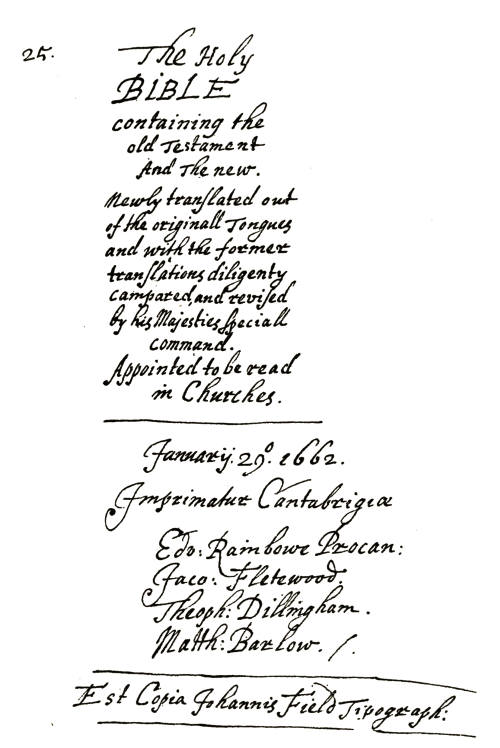 25.
The Holy
BIBLE
containing the
old Testament
And The new.
Newly translated out
of the originall Tongues
and with the former
translations diligenty
campared, and revised
by his Majesties speciall
command.
Appointed to be read
in Churches.
Januarij. 29º. 1662.
Imprimatur Cantabrigiæ
Edv: Rainbowe Procan:
Jaco: Fletewood.
Theoph: Dillingham.
Matth: Barlow. /.
Est Copia Johannis Field Tipograph: